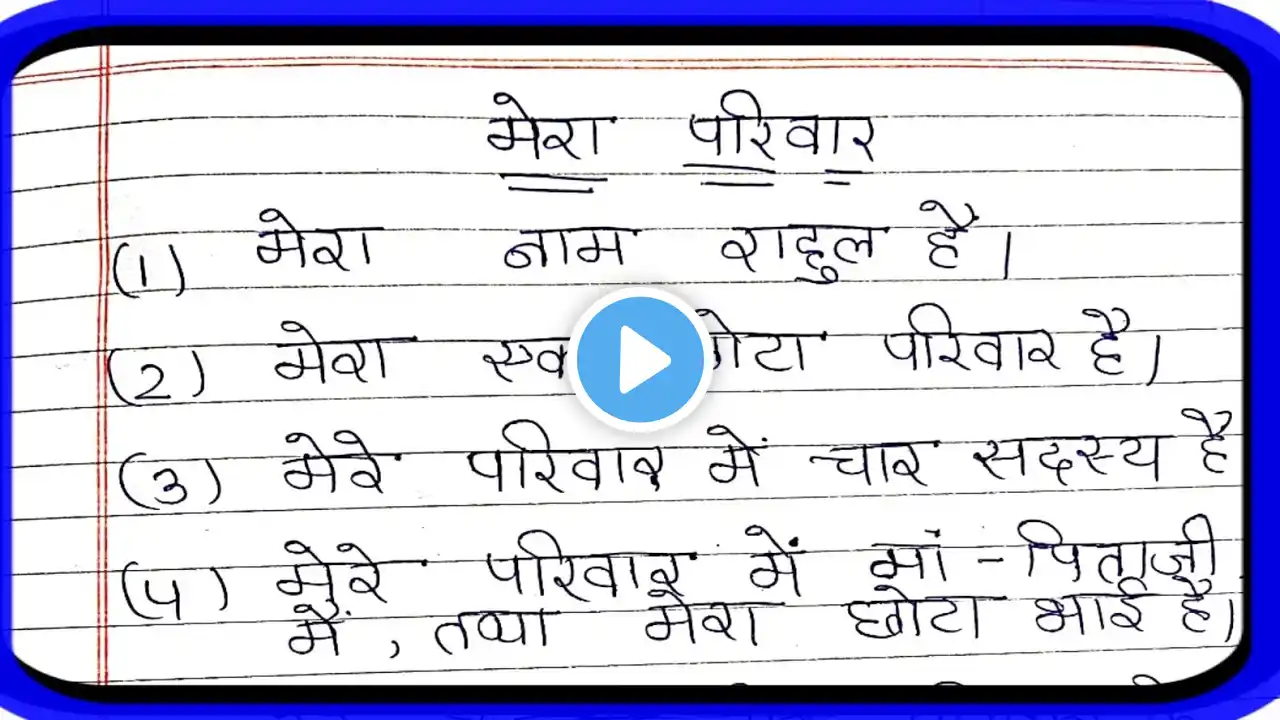 मेरा परिवार
(1) मेरा नाम राहुल है।
(2) मेरा परिवार है।
(3) मेरे परिवार में चार सदस्य है
(4) मेरे परिवार में मां - पिताजी
में , तथा मेरा छोटा भाई है।